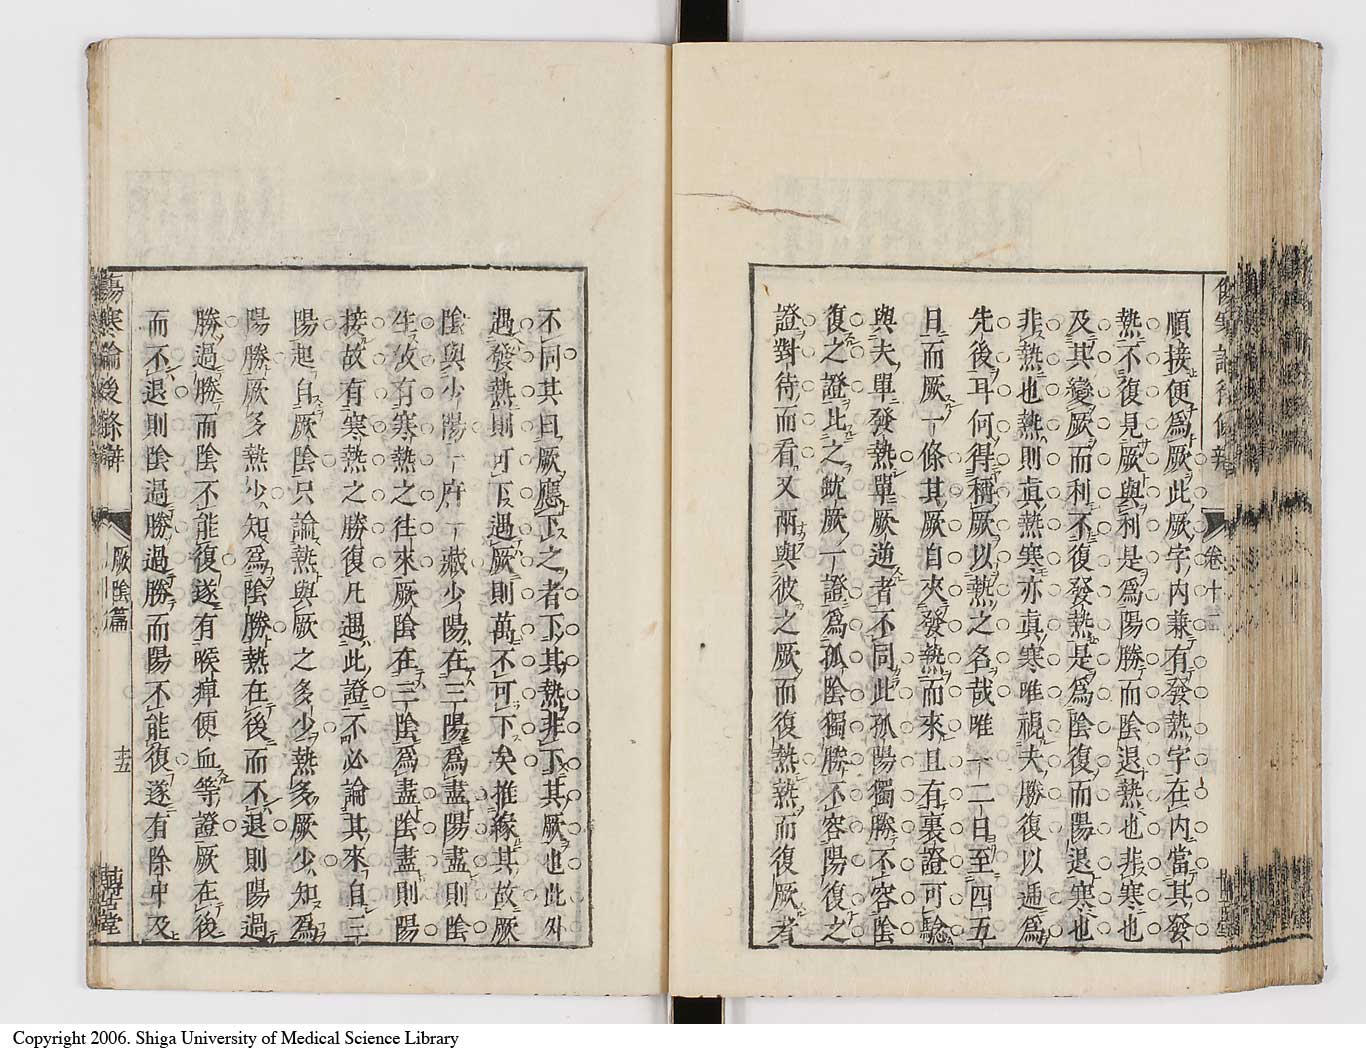 順接便爲厥此厥字内兼有發熱字在内當其發
熱不復見厥與利是爲陽勝而陰退熱也非寒也
及其變厥而利不復發熱是爲陰復而陽退寒也
非熱也熱則眞熱寒亦眞寒唯視夫勝復以逓爲
先後耳何得稱厥以熱之名哉唯一二日至四五
日而厥一條其厥自夾發熱而來且有裏證可驗
與夫單發熱單厥逆者不同此孤陽獨勝不容陰
復之證此之飮厥一證爲孤陰獨勝不容陽復之
證對待而看又兩與彼之厥而復熱熱而復厥者
卷十
不同其曰厥應下之者下其熱非下其厥也此外
遇發熱則可下遇厥則萬不可下矣推緣其故厥
陰與少陽一府一藏少陽在三陽爲盡陽盡則陰
生故有寒熱之往來厥陰在三陰爲盡陰盡則陽
接故有寒熱之勝復凡遇此證不必論其來自三
陽起自厥陰只論熱與厥之多少熱多厥少知爲
陽勝厥多熱少知爲陰勝熱在後而不退則陽過
勝過勝而陰不能復遂有喉痺便血等證厥在後
而不退則陰過勝過勝而陽不能復遂有除中及
傷寒論後條辯
厥陰篇
十五
Copyright 2006. Shiga University of Medical Science Library